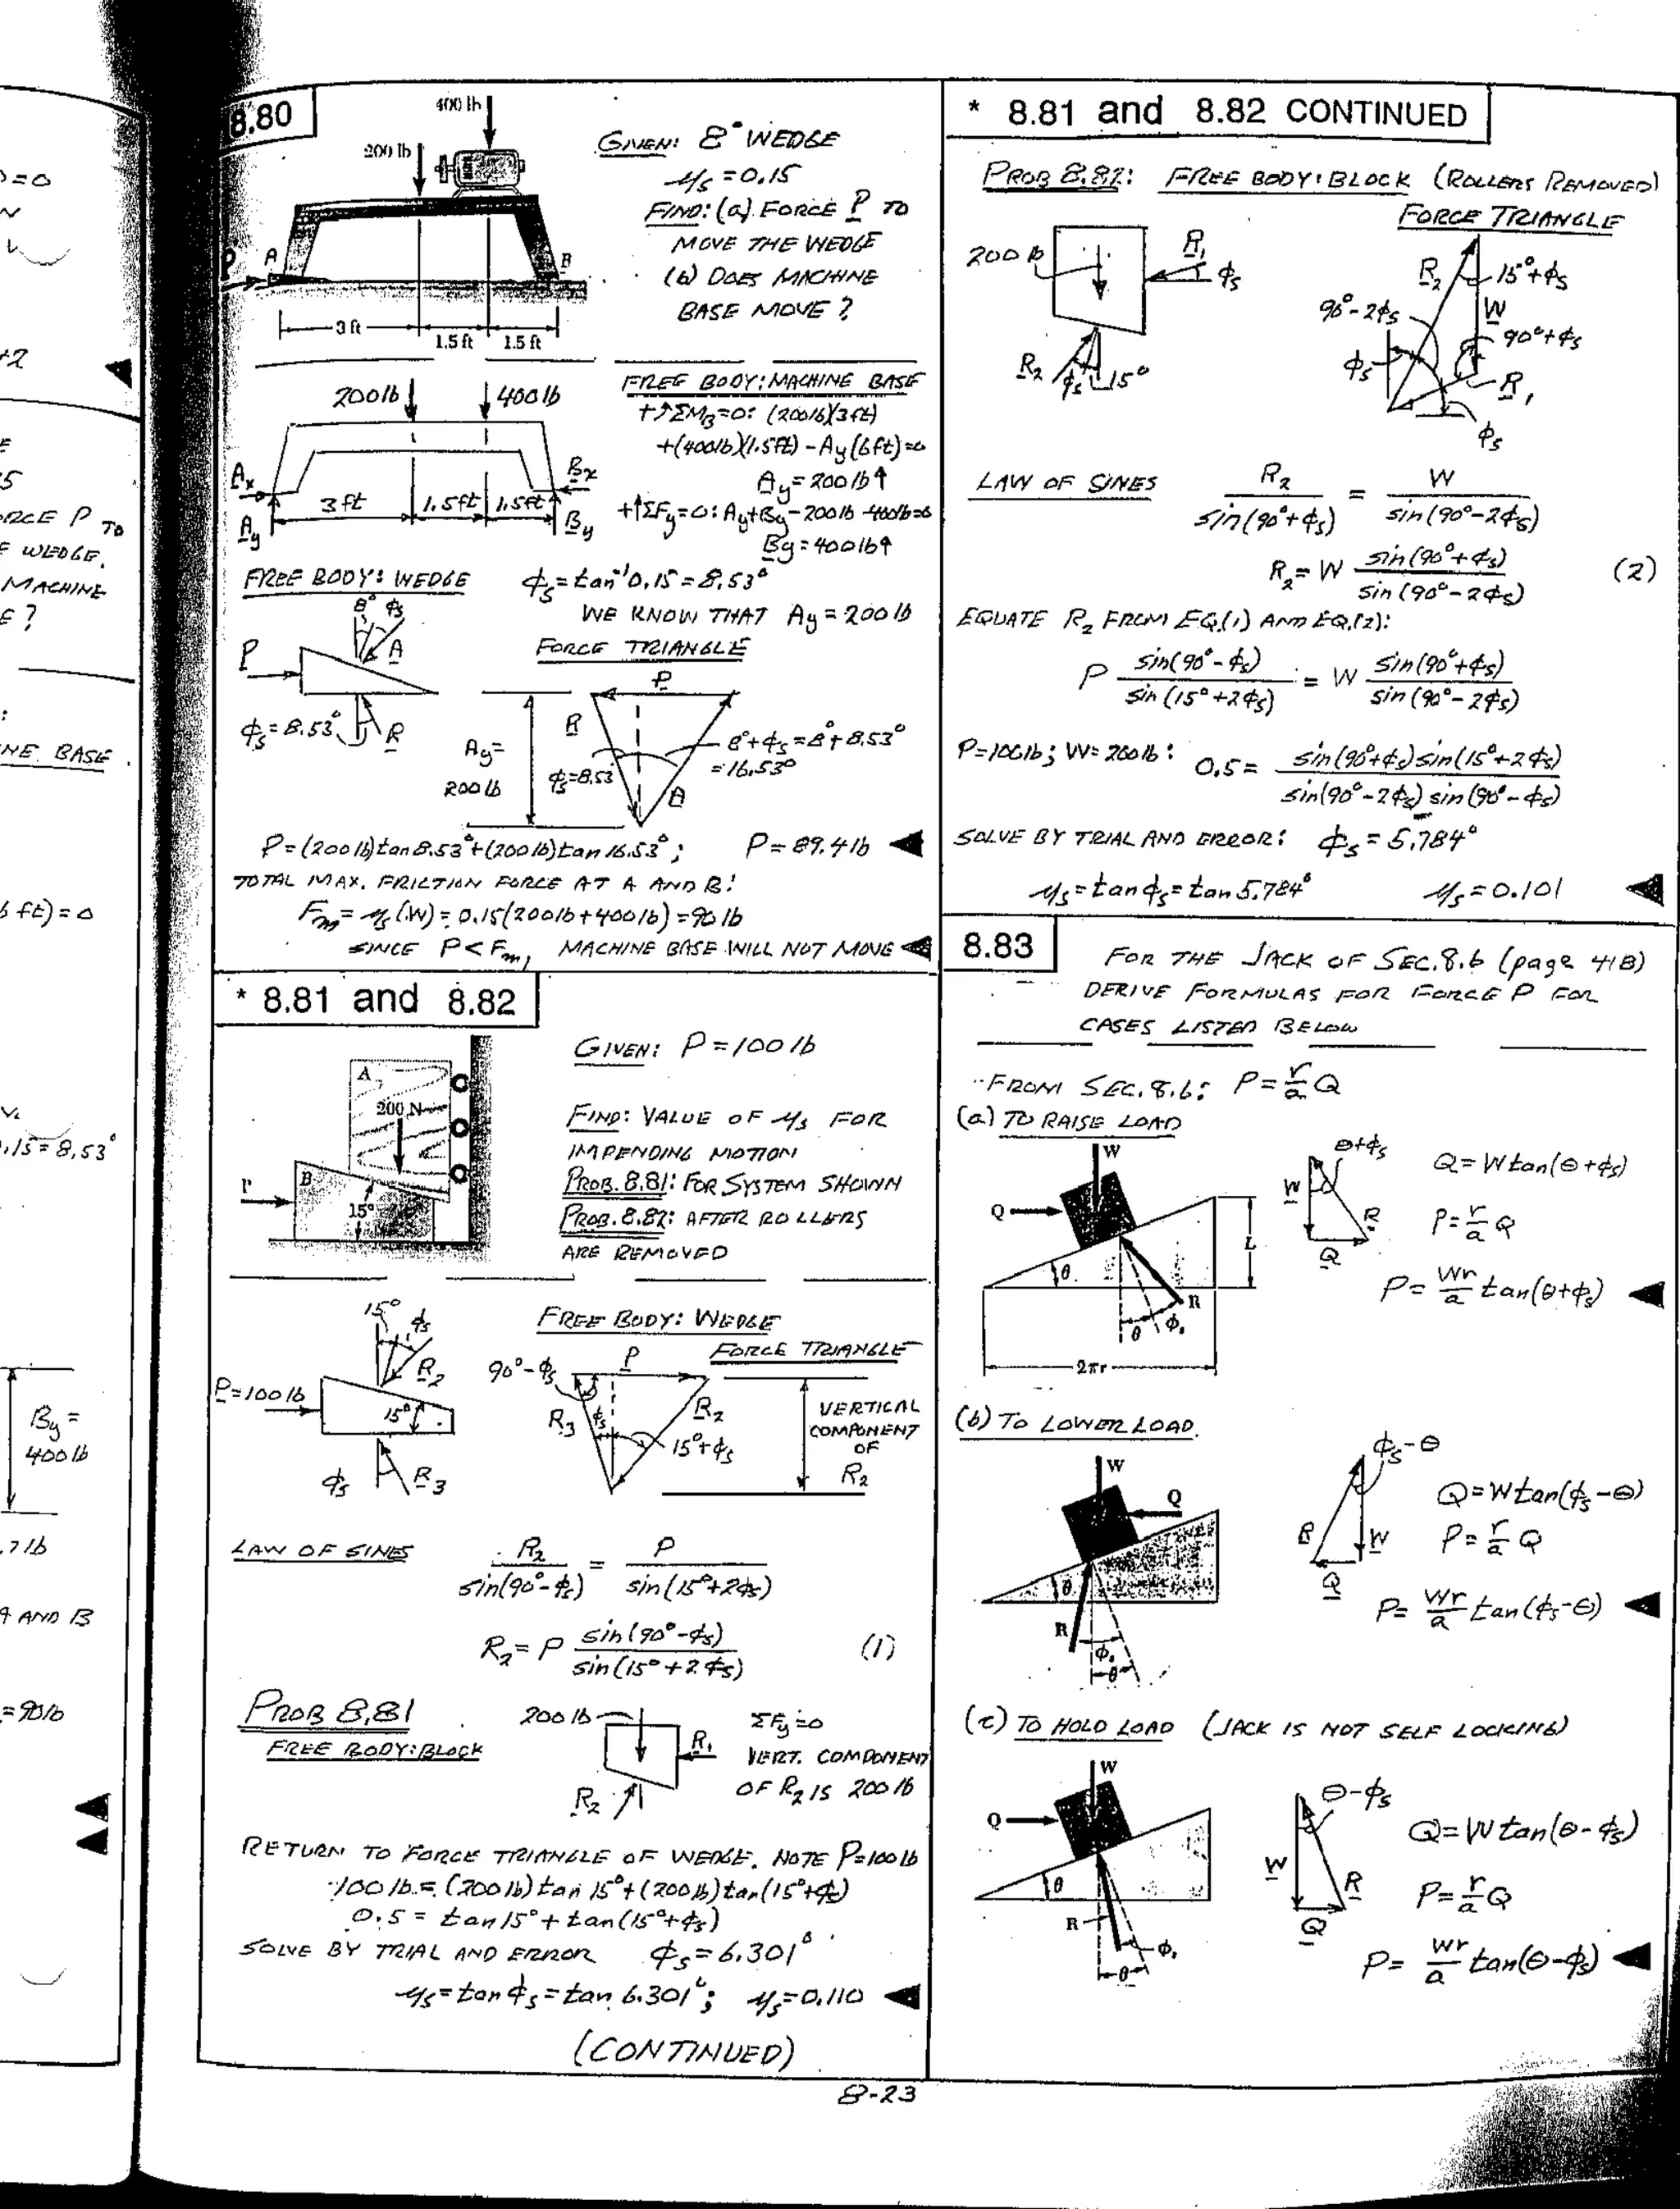 )=0
N
+2
5
ORCE P TO
F WEDGE.
MACHINE
E ?
:
NE BASE
6 ft) = 0
.15 = 8.53°
By =
400 lb
.7 lb
A AND B
= 90 lb
8.80
400 lb
200 lb
P
A
B
3 ft
1.5 ft
1.5 ft
GIVEN: 8° WEDGE
μs = 0.15
FIND: (a) FORCE P TO
MOVE THE WEDGE
(b) DOES MACHINE
BASE MOVE ?
200 lb
400 lb
Ax
Ay
Bx
By
3 ft
1.5 ft
1.5 ft
FREE BODY: MACHINE BASE
+↑ΣMB=0: (200 lb)(3 ft)
+(400 lb)(1.5 ft) - Ay(6 ft) = 0
Ay = 200 lb ↑
+↑ΣFy=0: Ay+By-200 lb-400 lb=0
By = 400 lb ↑
FREE BODY: WEDGE
φs = tan⁻¹ 0.15 = 8.53°
WE KNOW THAT Ay = 200 lb
8° φs
P
A
φs = 8.53°
R
FORCE TRIANGLE
P
R
Ay =
200 lb
φs = 8.53°
8°+φs = 8°+8.53°
= 16.53°
A
P = (200 lb) tan 8.53° + (200 lb) tan 16.53° ; P = 89.4 lb ◄
TOTAL MAX. FRICTION FORCE AT A AND B:
Fm = μs (W) = 0.15(200 lb + 400 lb) = 90 lb
SINCE P < Fm, MACHINE BASE WILL NOT MOVE ◄
* 8.81 and 8.82
A
200 N
B
P
15°
GIVEN: P = 100 lb
FIND: VALUE OF μs FOR
IMPENDING MOTION
PROB. 8.81: FOR SYSTEM SHOWN
PROB. 8.82: AFTER ROLLERS
ARE REMOVED
15°
φs
R2
P=100 lb
15°
φs
R3
FREE BODY: WEDGE
FORCE TRIANGLE
90°-φs
P
R3
φs
R2
15°+φs
VERTICAL
COMPONENT
OF
R2
LAW OF SINES R2/sin(90°-φs) = P/sin(15°+2φs)
R2 = P sin(90°-φs)/sin(15°+2φs) (1)
PROB 8.81
FREE BODY: BLOCK
200 lb
R1
R2
ΣFy=0
VERT. COMPONENT
OF R2 IS 200 lb
RETURN TO FORCE TRIANGLE OF WEDGE. NOTE P=100 lb
100 lb = (200 lb) tan 15° + (200 lb) tan(15°+φs)
0.5 = tan 15° + tan(15°+φs)
SOLVE BY TRIAL AND ERROR φs = 6.301°
μs = tan φs = tan 6.301° ; μs = 0.110 ◄
(CONTINUED)
* 8.81 and 8.82 CONTINUED
PROB 8.82: FREE BODY: BLOCK (ROLLERS REMOVED)
FORCE TRIANGLE
200 lb
R1
φs
R2
φs
15°
R2
15°+φs
90°-2φs
W
90°+φs
φs
R1
φs
LAW OF SINES R2/sin(90°+φs) = W/sin(90°-2φs)
R2 = W sin(90°+φs)/sin(90°-2φs) (2)
EQUATE R2 FROM EQ.(1) AND EQ.(2):
P sin(90°-φs)/sin(15°+2φs) = W sin(90°+φs)/sin(90°-2φs)
P=100 lb; W=200 lb: 0.5 = sin(90°+φs) sin(15°+2φs)/sin(90°-2φs) sin(90°-φs)
SOLVE BY TRIAL AND ERROR: φs = 5.784°
μs = tan φs = tan 5.784° μs = 0.101 ◄
8.83
FOR THE JACK OF SEC. 8.6 (page 418)
DERIVE FORMULAS FOR FORCE P FOR
CASES LISTED BELOW
FROM SEC. 8.6: P = r/a Q
(a) TO RAISE LOAD
W
Q
θ
L
R
θ
φs
2πr
θ+φs
W
R
Q
Q = W tan(θ+φs)
P = r/a Q
P = Wr/a tan(θ+φs) ◄
(b) TO LOWER LOAD
W
Q
θ
R
φs
θ
φs-θ
R
W
Q
Q = W tan(φs-θ)
P = r/a Q
P = Wr/a tan(φs-θ) ◄
(c) TO HOLD LOAD (JACK IS NOT SELF LOCKING)
W
Q
θ
R
φs
θ
θ-φs
W
R
Q
Q = W tan(θ-φs)
P = r/a Q
P = Wr/a tan(θ-φs) ◄
8-23